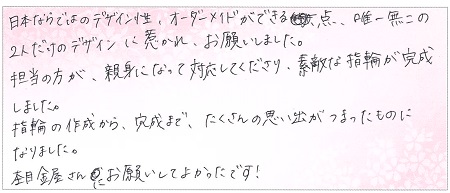 日本ならではのデザイン性、オーダーメイドができる点、、唯一無二の
2人だけのデザインに惹かれ、お願いしました。
担当の方が、親身になって対応してくださり、素敵な指輪が完成
しました。
指輪の作成から、完成まで、たくさんの思い出がつまったものに
なりました。
杢目金屋さんにお願いしてよかったです!